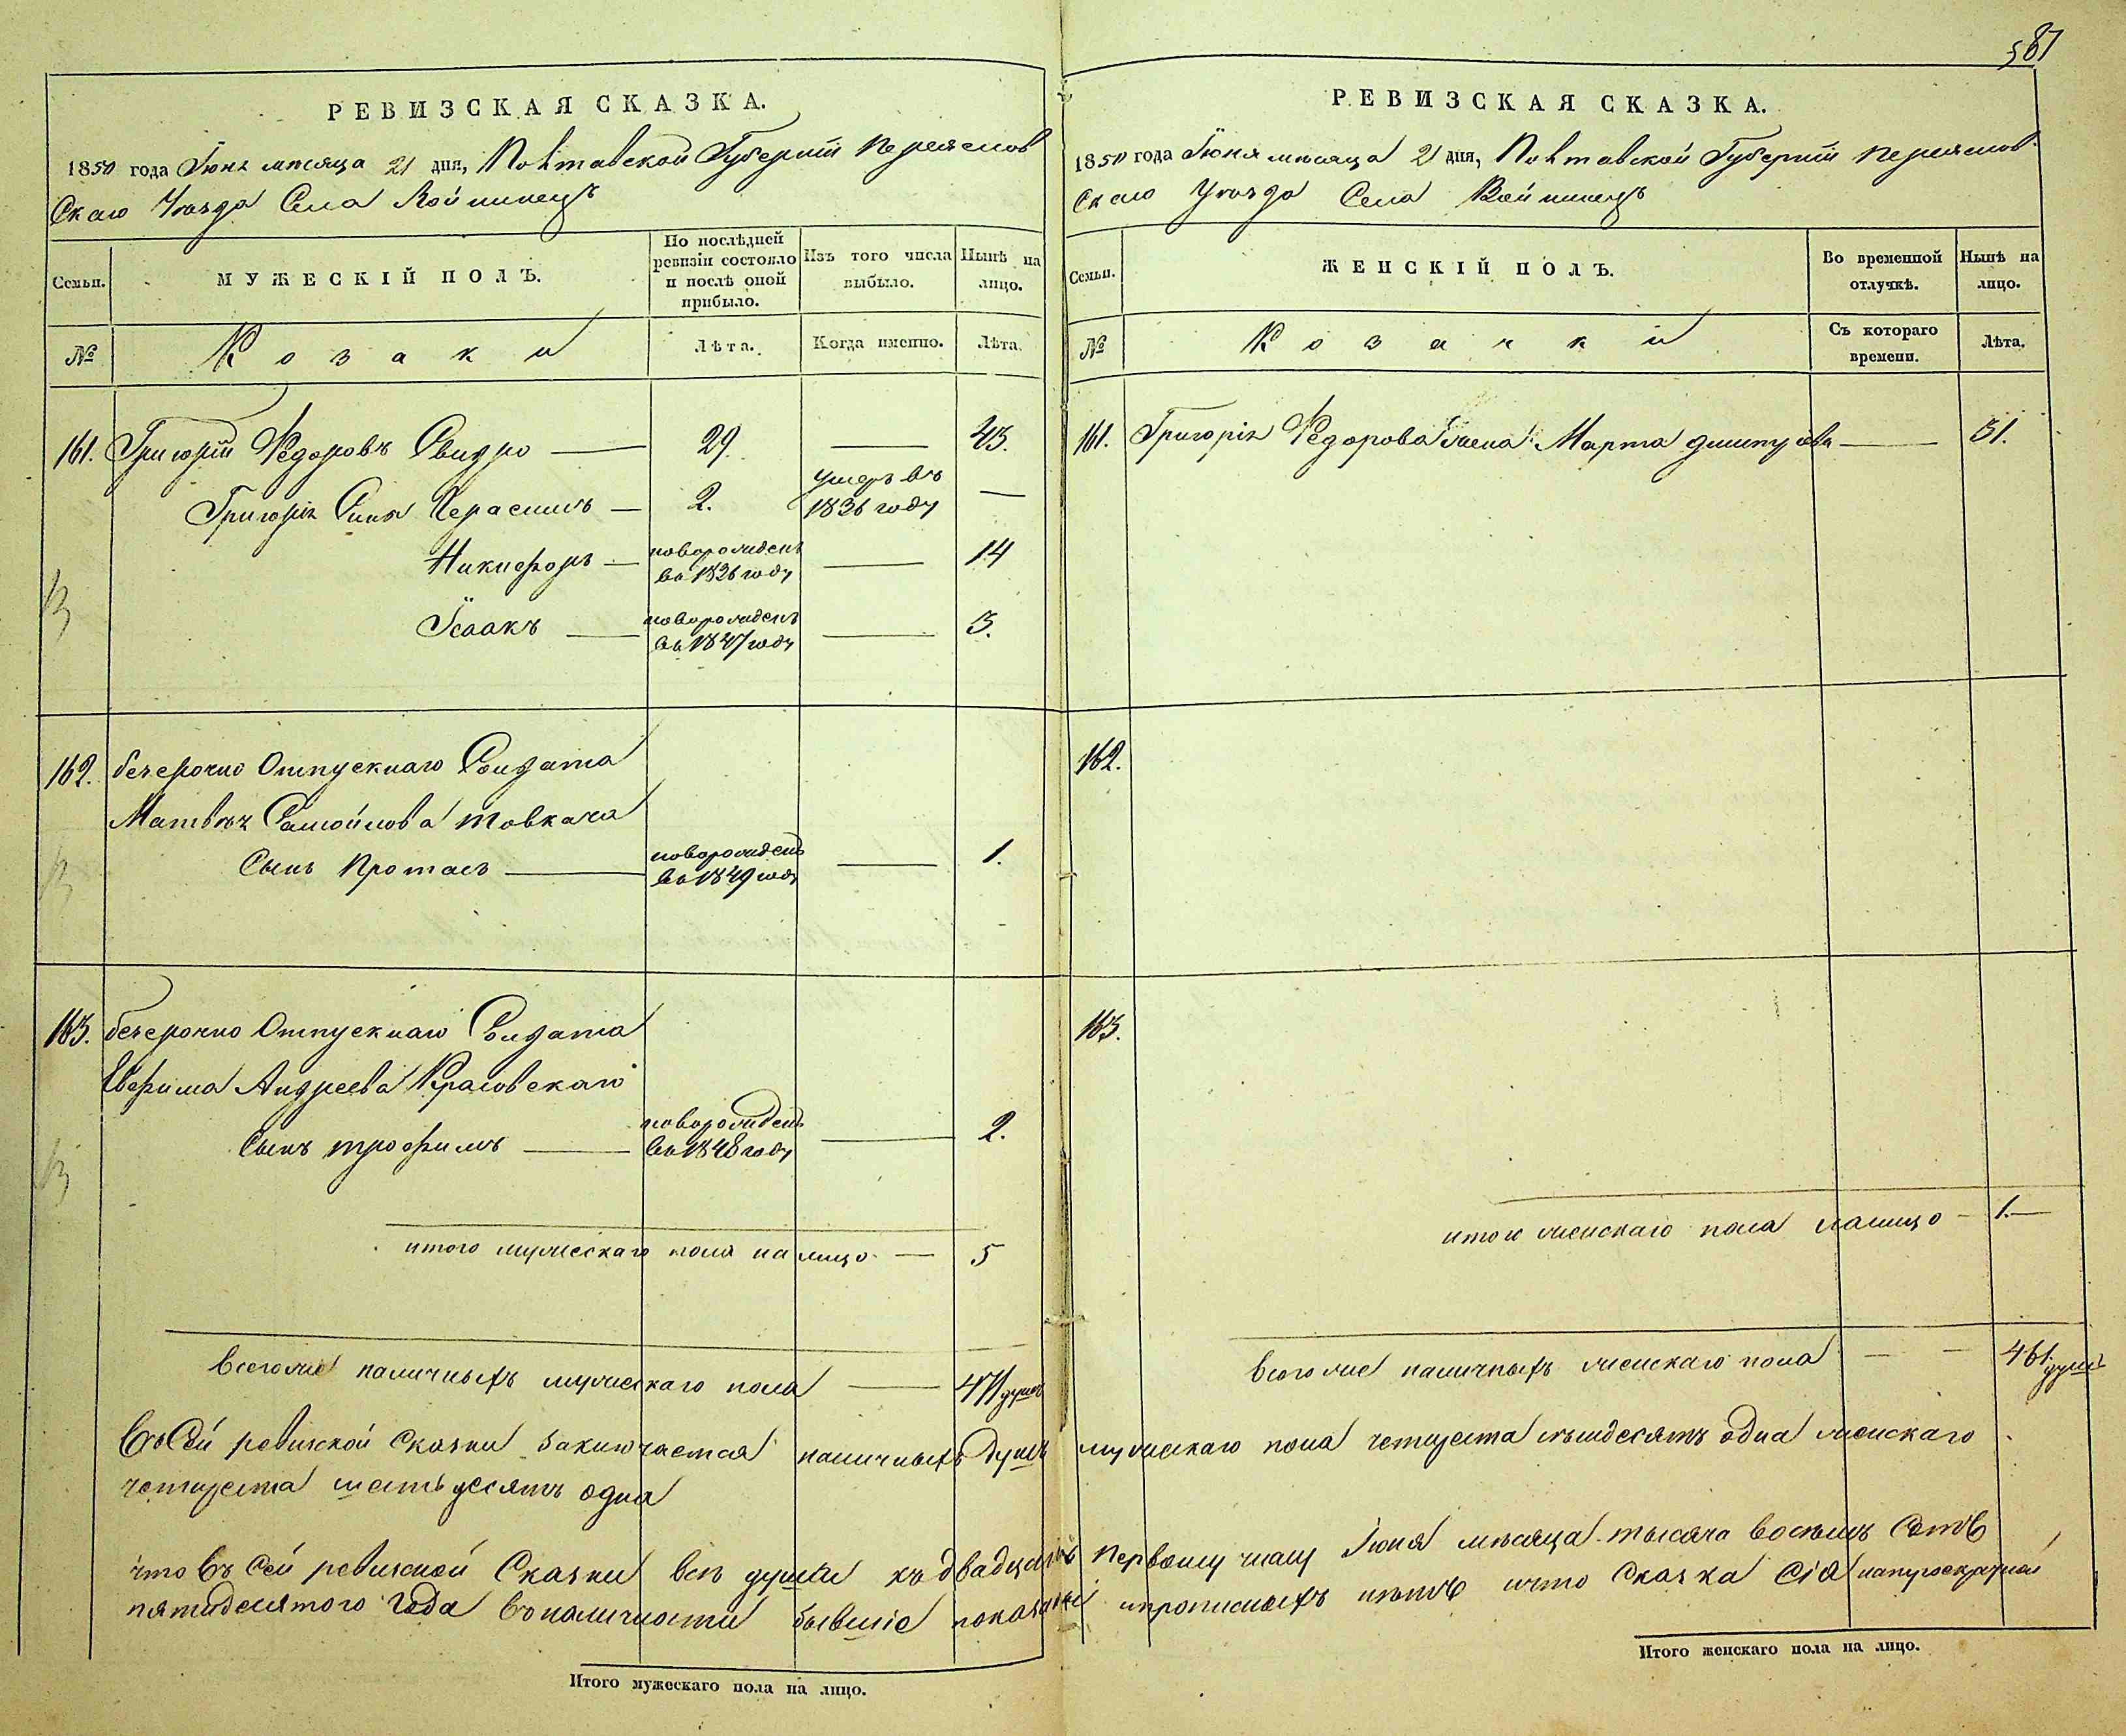 587
РЕВИЗСКАЯ СКАЗКА.
1850 года Іюня мѣсяца 21 дня, Полтавской Губерніи Переяслов
скаго Уѣзда Села Войтинецъ
Семьи.
МУЖЕСКІЙ ПОЛЪ.
По послѣдней ревизіи состояло и послѣ оной прибыло.
Изъ того числа выбыло.
Нынѣ на лицо.
№
Козаки
Лѣта.
Когда именно.
Лѣта.
161. Григорій Федоровъ Свидро — 29. — 43.
Григорія Сынъ Герасимъ — 2. умеръ въ 1836 году —
Никифоръ — новорожденъ въ 1836 году — 14
Ісаакъ — новорожденъ въ 1847 году — 3.
162. безсрочно Отпускнаго Солдата
Матвѣя Самойлова Товкача
Сынъ Протасъ — новорожденъ въ 1849 году — 1.
163. безсрочно Отпускнаго Солдата
Евфима Андреева Красовскаго
Сынъ Трофимъ — новорожденъ въ 1848 году — 2.
итого мужескаго пола на лицо — 5
всего же наличныхъ мужескаго пола — 471 душъ
РЕВИЗСКАЯ СКАЗКА.
1850 года Іюня мѣсяца 21 дня, Полтавской Губерніи Переяслов
скаго Уѣзда Села Войтинецъ
Семьи.
ЖЕНСКІЙ ПОЛЪ.
Во временной отлучкѣ.
Нынѣ на лицо.
№
Козачки
Съ котораго времени.
Лѣта.
161. Григорія Федорова жена Марта — 31.
162.
163.
итого женскаго пола налицо — 1. —
всего же наличныхъ женскаго пола — — 461 душъ
Въ Сей ревизской Сказки заключается наличныхъ душъ мужескаго пола четыреста семьдесятъ одна женскаго
четыреста шестьдесятъ одна
что въ Сей ревизской Сказки всѣ души къ двадцать первому числу Іюня мѣсяца тысяча восемь сотъ
пятидесятого года въ наличности бывшіе показаны прописныхъ нѣтъ и что Сказка Сія
Итого мужескаго пола на лицо.
Итого женскаго пола на лицо.